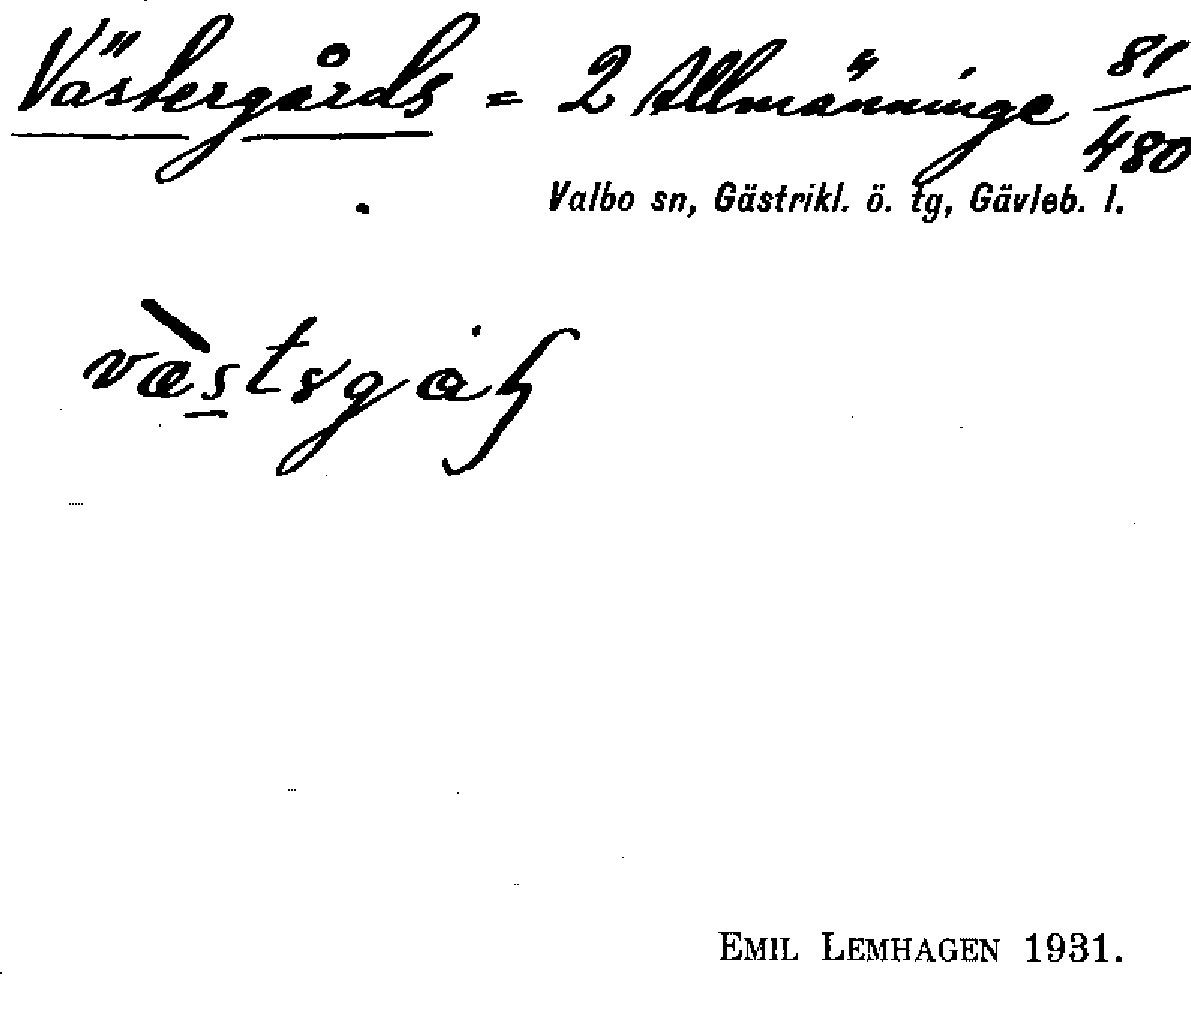 Västergårds = 2 Allmänninge 81/480
Valbo sn, Gästrikl. ö. tg, Gävleb. l.
EMIL LEMHAGEN 1931.